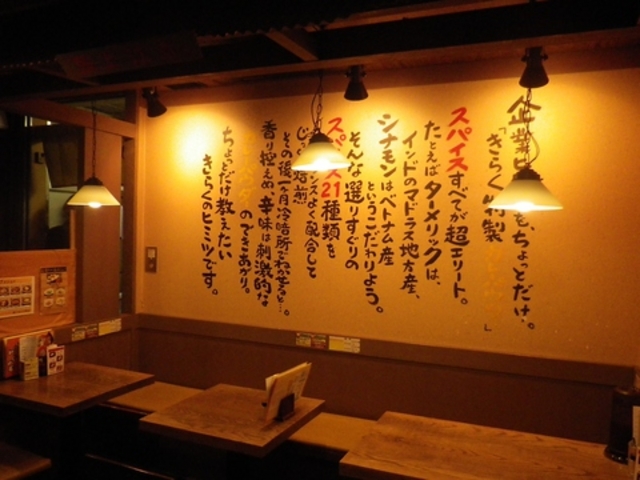 企業 も、ちょっとだけ。
「きらく特製 」
スパイスすべてが超エリート。
たとえばターメリックは、
インドのマドラス地方産、
シナモンはベトナム産
というこだわりよう。
そんな選りすぐりの
スパイス21種類を
よく配合して
焙煎
その後一ヶ月冷暗所でねかせると…。
香り控えめ、辛味は刺激的な
のできあがり。
ちょっとだけ教えたい
きらくのヒミツです。